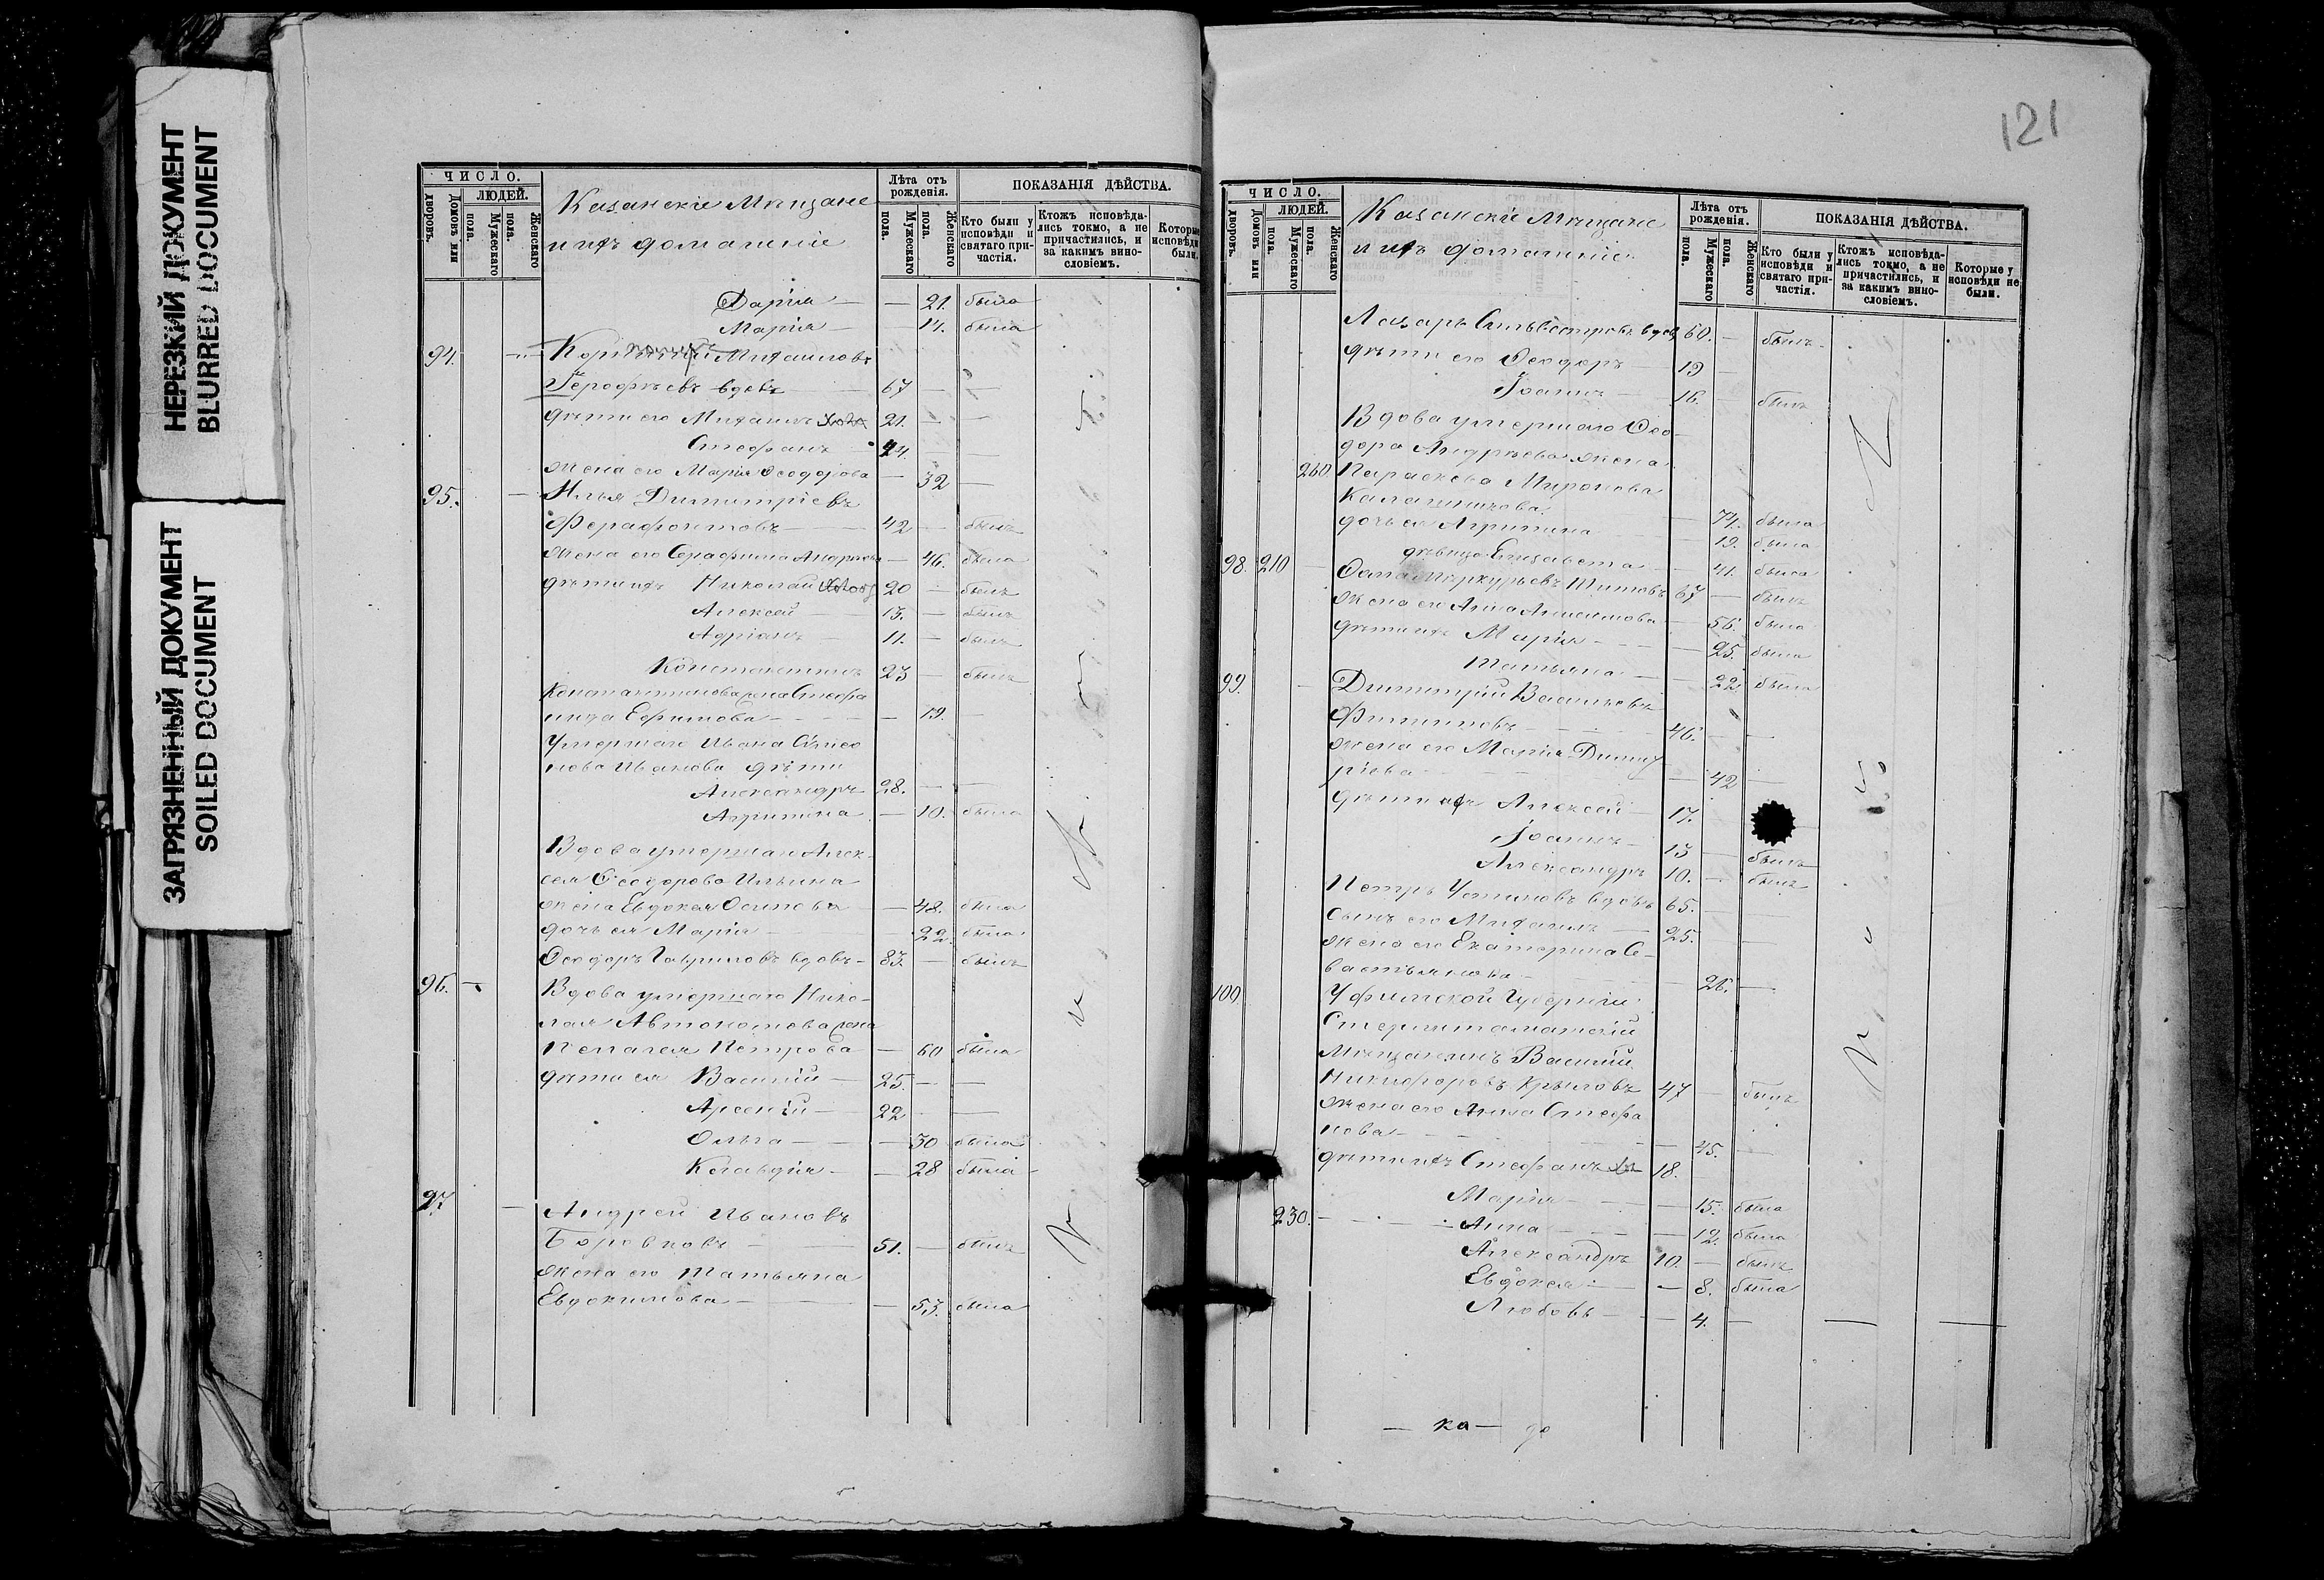 НЕРЕЗКИЙ ДОКУМЕНТ
BLURRED DOCUMENT
ЗАГРЯЗНЕННЫЙ ДОКУМЕНТ
SOILED DOCUMENT
ЧИСЛО.
Домовъ или дворовъ.
ЛЮДЕЙ.
Мужескаго пола.
Женскаго пола.
Казанскіе Мѣщане
и ихъ домашніе
Лѣта отъ рожденія.
Мужескаго пола.
Женскаго пола.
ПОКАЗАНІЯ ДѢЙСТВА.
Кто были у исповѣди и святаго причастія.
Ктожъ исповѣдались токмо, а не причастились, и за какимъ винословіемъ.
Которые исповѣди были.
Дарія — — 21. была
Марія — 14. была
94. Михаиловъ
Герофѣевъ вдовъ 67 — —
дѣти его Михаилъ 21. — —
Стефанъ 24. — —
жена его Марія Ѳеодорова — 32 —
95. Илья Димитріевъ
Ферафонтовъ — 42 — былъ
жена его Серафима Андреева — 46. была
дѣти ихъ Николай 20 — былъ
Алексей — 13. — былъ
Адріанъ — 11. — былъ
Константинъ 23 — былъ
Константинова жена Стефа
нида Ефимова — — 19. —
Умершаго Ивана
нова Иванова дѣти
Александръ 28. — —
Агрипина — 10. была
Вдова умершаго Алек-
сея Ѳеодорова Ильина
жена Евдокея Осипова — 48. была
дочь ея Марія — — 22. была
Ѳеодоръ Гавриловъ вдовъ — 83. — былъ
96. — Вдова умершаго Нико-
лая Автономова жена
Пелагея Петрова — 60 была
дѣти ея Василій — 25. — —
Арсеній — 22 — —
Ольга — — 30 была
Клавдія — — 28 была
97. — Андрей Ивановъ
Боровковъ — 51. — былъ
жена его Татьяна
Евдокимова — — 53. была
121
ЧИСЛО.
Домовъ или дворовъ.
ЛЮДЕЙ.
Мужескаго пола.
Женскаго пола.
Казанскіе Мѣщане
и ихъ домашніе
Лѣта отъ рожденія.
Мужескаго пола.
Женскаго пола.
ПОКАЗАНІЯ ДѢЙСТВА.
Кто были у исповѣди и святаго причастія.
Ктожъ исповѣдались токмо, а не причастились, и за какимъ винословіемъ.
Которые у исповѣди не были.
Лазарь Сильвестровъ вдовъ 60. — былъ
дѣти его Ѳеодоръ — 19 —
Іоаннъ — 16. — былъ
Вдова умершаго Ѳео-
дора Андреева жена
Параскева Миронова
Калашникова — 74. была
дочь ея Агрипина — 19. была
дѣвица Елизавета — — 41. была
98. 210 — Меркурьевъ Титовъ 67 — былъ
жена его Анна — 56. была
дѣти ихъ Марія — — 25. была
Татьяна — — 22. была
99. — Димитрій Васильевъ
Филиповъ — 46. — —
жена его Марія Димит
ріева — — 42 —
дѣти ихъ Алексей — 17. —
Іоаннъ — 13 — былъ
Александръ 10. — былъ
Петръ Устиновъ вдовъ 65. —
сынъ его Михаилъ — 25. —
жена его Екатерина Се-
вастьянова — — 26. —
100 Уфимской Губерніи
Стерлитаманскій
Мѣщанинъ Василій
Никифоровъ Крыловъ 47 — былъ
жена его Анна Стефа
нова — — 45. —
дѣти ихъ Стефанъ 18. —
Марія — — 15. была
230. — Анна — — 12. была
Александръ 10. — былъ
Евдокея — — 8. была
Любовь — — 4. — — —
— ка —